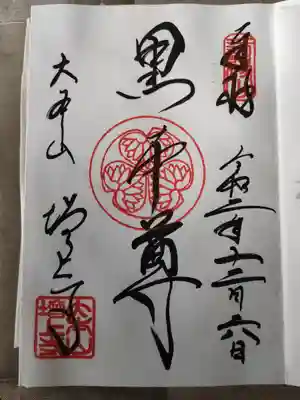 奉拝
令和二年十二月六日
黒本尊
大本山
増上寺